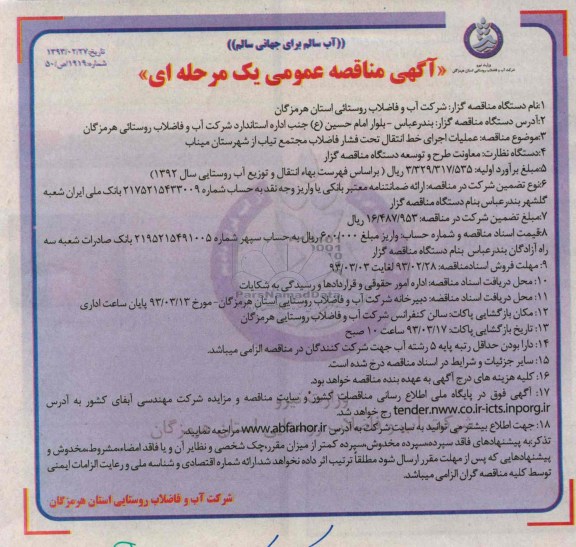 ((آب سالم برای جهانی سالم))
تاریخ:۱۳۹۳/۰۲/۲۷
شماره:۱۹۱۹/ص/۵۰
وزارت نیرو
شرکت آب و فاضلاب روستایی استان هرمزگان
«آگهی مناقصه عمومی یک مرحله ای»
۱:نام دستگاه مناقصه گزار: شرکت آب و فاضلاب روستائی استان هرمزگان
۲:آدرس دستگاه مناقصه گزار: بندرعباس -بلوار امام حسین (ع) جنب اداره استاندارد شرکت آب و فاضلاب روستائی هرمزگان
۳:موضوع مناقصه: عملیات اجرای خط انتقال تحت فشار فاضلاب مجتمع تیاب از شهرستان میناب
۴:دستگاه نظارت: معاونت طرح و توسعه دستگاه مناقصه گزار
۵:مبلغ برآورد اولیه: ۳/۳۲۹/۳۱۷/۵۳۵ ریال ( براساس فهرست بهاء انتقال و توزیع آب روستایی سال ۱۳۹۲)
۶:نوع تضمین شرکت در مناقصه: ارائه ضمانتنامه معتبر بانکی یا واریز وجه نقد به حساب شماره ۲۱۷۵۲۱۵۴۳۳۰۰۹ بانک ملی ایران شعبه
گلشهر بندرعباس بنام دستگاه مناقصه گزار
۷:مبلغ تضمین شرکت در مناقصه: ۱۶/۴۸۷/۹۵۳ ریال
۸:قیمت اسناد مناقصه و شماره حساب: واریز مبلغ ۶۰۰/۰۰۰ ریال به حساب سپهر شماره ۲۱۹۵۲۱۵۴۹۱۰۰۵ بانک صادرات شعبه سه
راه آزادگان بندرعباس بنام دستگاه مناقصه گزار
۹: مهلت فروش اسنادمناقصه: ۹۳/۰۲/۲۸ لغایت ۹۳/۰۳/۰۳
۱۰: محل دریافت اسناد مناقصه: اداره امور حقوقی و قراردادها و رسیدگی به شکایات
۱۱: محل دریافت اسناد مناقصه: دبیرخانه شرکت آب و فاضلاب روستایی استان هرمزگان- مورخ ۹۳/۰۳/۱۳ پایان ساعت اداری
۱۲: مکان بازگشایی پاکات: سالن کنفرانس شرکت آب و فاضلاب روستایی هرمزگان
۱۳: تاریخ بازگشایی پاکات: ۹۳/۰۳/۱۷ ساعت ۱۰ صبح
۱۴: دارا بودن حداقل رتبه پایه ۵ رشته آب جهت شرکت کنندگان در مناقصه الزامی میباشد.
۱۵: سایر جزئیات و شرایط در اسناد مناقصه درج شده است.
۱۶: کلیه هزینه های درج آگهی به عهده بنده مناقصه خواهد بود.
۱۷: آگهی فوق در پایگاه ملی اطلاع رسانی مناقصات کشور و سایت مناقصه و مزایده شرکت مهندسی آبفای کشور به آدرس
tender.nww.co.ir-icts.inporg.ir رج خواهد شد.
۱۸: جهت اطلاع بیشتر می توانید به سایت شرکت به آدرس www.abfarhor.ir مراجعه نمایید.
تذکر:به پیشنهادهای فاقد سپرده،سپرده مخدوش،سپرده کمتر از میزان مقرر،چک شخصی و نظایر آن و یا فاقد امضاء،مشروط،مخدوش و
پیشنهادهایی که پس از مهلت مقرر ارسال شود مطلقاً ترتیب اثر داده نخواهد شد.ارائه شماره اقتصادی و شناسه ملی و رعایت الزامات ایمنی
توسط کلیه مناقصه گران الزامی میباشد.
شرکت آب و فاضلاب روستایی استان هرمزگان